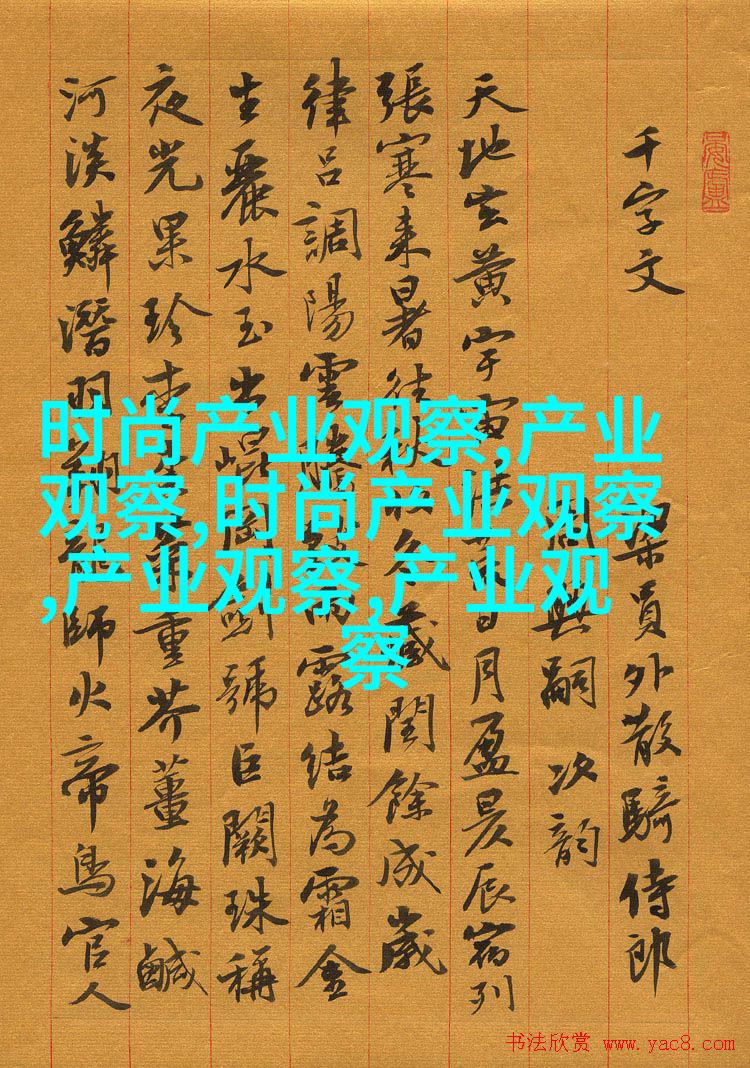 千字文
梁員外散騎侍郎
周興嗣次韵
天地玄黃宇宙洪荒日月盈昃辰宿列
張寒来暑往秋收冬藏閏餘成歲
律吕調陽雲騰致雨露結為霜金
生麗水玉出崐岡劍號巨闕珠稱
夜光果珍李柰菜重芥薑海鹹
河淡鱗潛羽翔龍師火帝鳥官人
时尚产业观察,产业
观察,时尚产业观察
,产业观察,产业观
察
书法欣赏 www.yac8.com